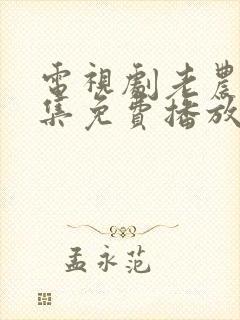 電視劇老農
集免費播放
孟永范